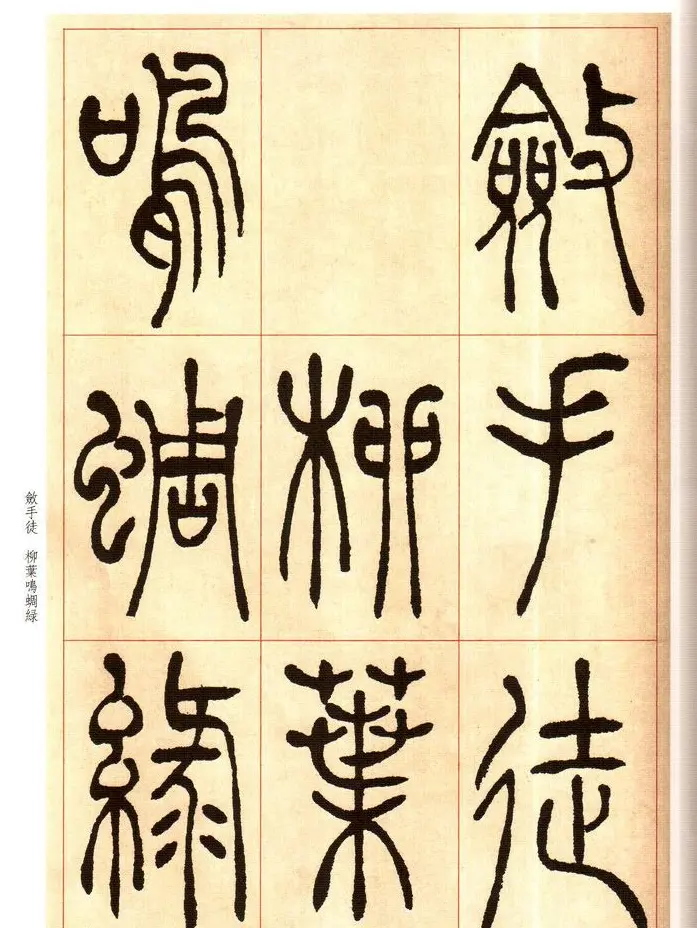 斂手徒
柳葉
鳴蜩緑
斂手徒 柳葉鳴蜩緑